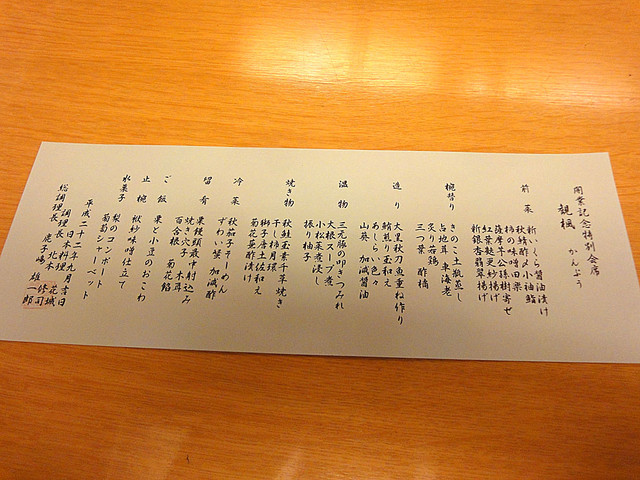 開業記念特別会席
観楓 かんぷう
前菜 新いくら醤油漬け
秋鯖酢〆小袖鮨
柿の味噌田楽
薩摩芋公孫樹寄せ
紅葉麩更紗揚げ
新銀杏翡翠揚げ
椀替り きのこ土瓶蒸し
占地茸 車海老
炙り若鶏
三つ葉 酢橘
造り 大皿秋刀魚重ね作り
鮪煎り玉和え
あしらい色々
山葵 加減醤油
温物 三元豚の叩きつみれ
大根スープ煮
小松菜煮浸し
振り柚子
焼き物 秋鮭玉素千草焼き
干し柿月環
獅子唐土佐和え
菊花蕪酢漬け
冷菜 秋茄子そーめん
ずわい蟹 加減酢
留肴 栗饅頭最中射込み
焼き穴子 木耳
百合根 菊花餡
ご飯 栗と小豆のおこわ
止椀 袱紗味噌仕立て
水菓子 梨のコンポート
葡萄シャーベット
平成二十二年九月吉日
調理長 日本料理 花城
北本 修司
総調理長 鹿子嶋 雄一郎